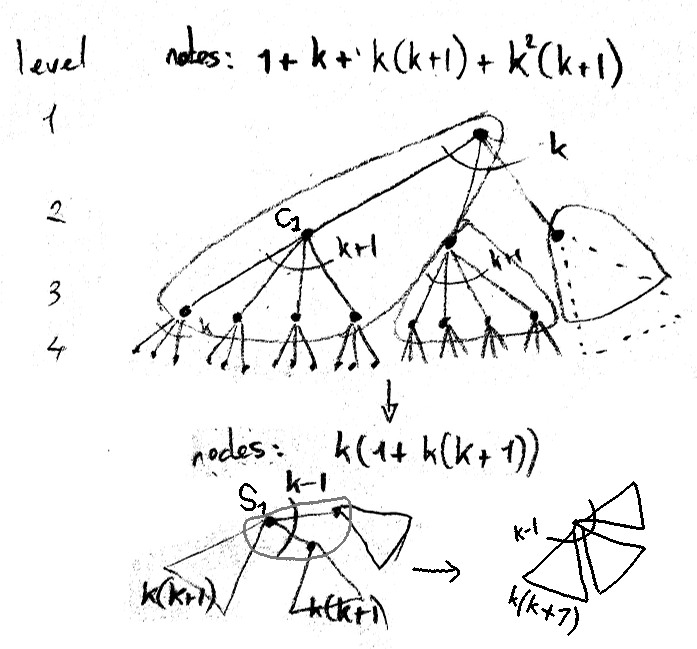 level notes: 1 + k + k(k+1) + k²(k+1)
1
k
2
C1
k+1
k+1
3
k
4
nodes: k(1 + k(k+1))
k-1
S1
k-1
k(k+1) k(k+1)
k(k+1)